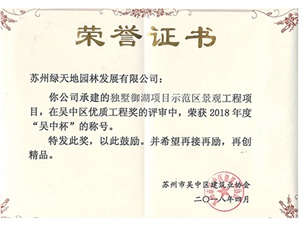 荣誉证书
苏州绿天地园林发展有限公司：
你公司承建的独墅御湖项目示范区景观工程项
目，在吴中区优质工程奖的评审中，荣获 2018 年度
“吴中杯”的称号。
特发此奖，以此鼓励。并希望再接再励，再创
精品。
苏州市吴中区建筑业协会
二〇一八年四月